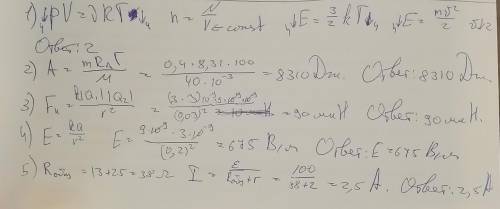 1) ↓pV = νRT↓₄ n = N/V = const ₄↓E = 3/2 kT↓₄ ↓E = mv²/2
Ответ: 2
2) A = mRΔT/M = 0,4 · 8,31 · 100 / 40 · 10⁻³ = 8310 Дж. Ответ: 8310 Дж.
3) Fк = k|q₁||q₂|/r² = /(0,03)² = 90 мкН Ответ: 90 мкН.
4) E = kq/r² E = 9·10⁹ · 3·10⁻⁹/(0,2)² = 675 В/м Ответ: E = 675 В/м
5) Rобщ = 13+25 = 38 Ω I = ε/Rобщ+r = 100/38+2 = 2,5 А. Ответ: 2,5 А